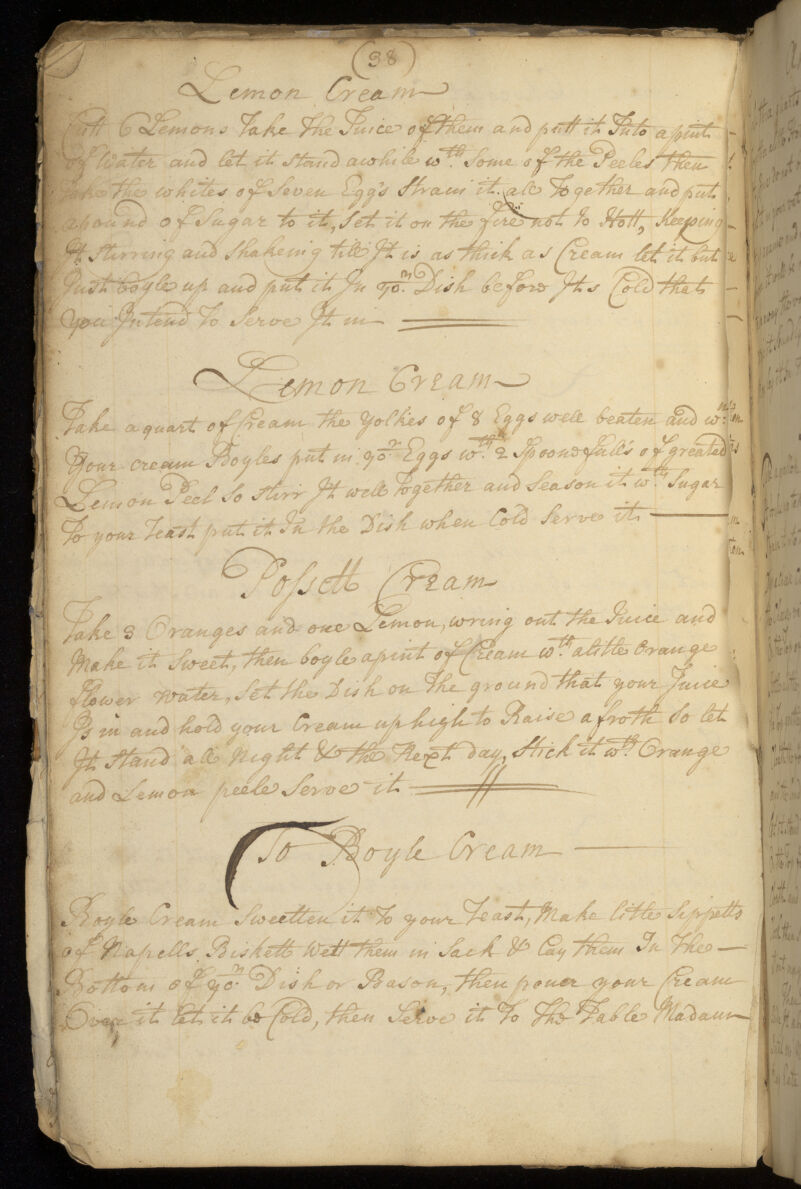 (38)
Lemon Cream
Cutt 6 Lemons Take the Juice of them and putt it Into a pint
of Water and let it stand awhile wth. Some of the Peeles then
take the whites of Seven Egg's Strain it all Together and put
a pound of Sugar to it, Set it on the fire not to Hott, Keeping
It stirring and shakeing till It is as thick as Cream let it but
Just boyle up and put it In yor. Dish before Its Cold that
You Intend To Serve It in
Lemon Cream
Take a quart of Cream the Yolkes of 8 Eggs well beaten and wn.
Your cream Boyles put in yor. Eggs wth. 2 Spoonefull's of greated
Lemon Peel So stirr It well Together and Season it wth. Sugar
To your Teast put it In the Dish when Cold Serve it
Possett Cream
Take 3 Oranges and one Lemon, wring out the Juice and
Make it Sweet, then boyle a pint of Cream wth. a litle Orange
flower Water, Set the Dish on The ground that your Juice
Is in and hold your Cream up high to Raise a froth So let
It stand all Night & the Next day, Stick it wth. Orange
and Lemon peele Serve it
To Boyle Cream
Boyle Cream Sweetten it To your Teast, Make litle Sippetts
of Napells Biskett Wett them in Sack & Lay them In The
Bottom of yor. Dish or Bason, then pouer your Cream
Over it let it be Cold, then Serve it To The Table Madam